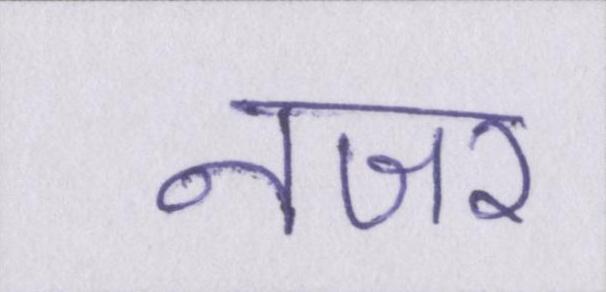 नजर